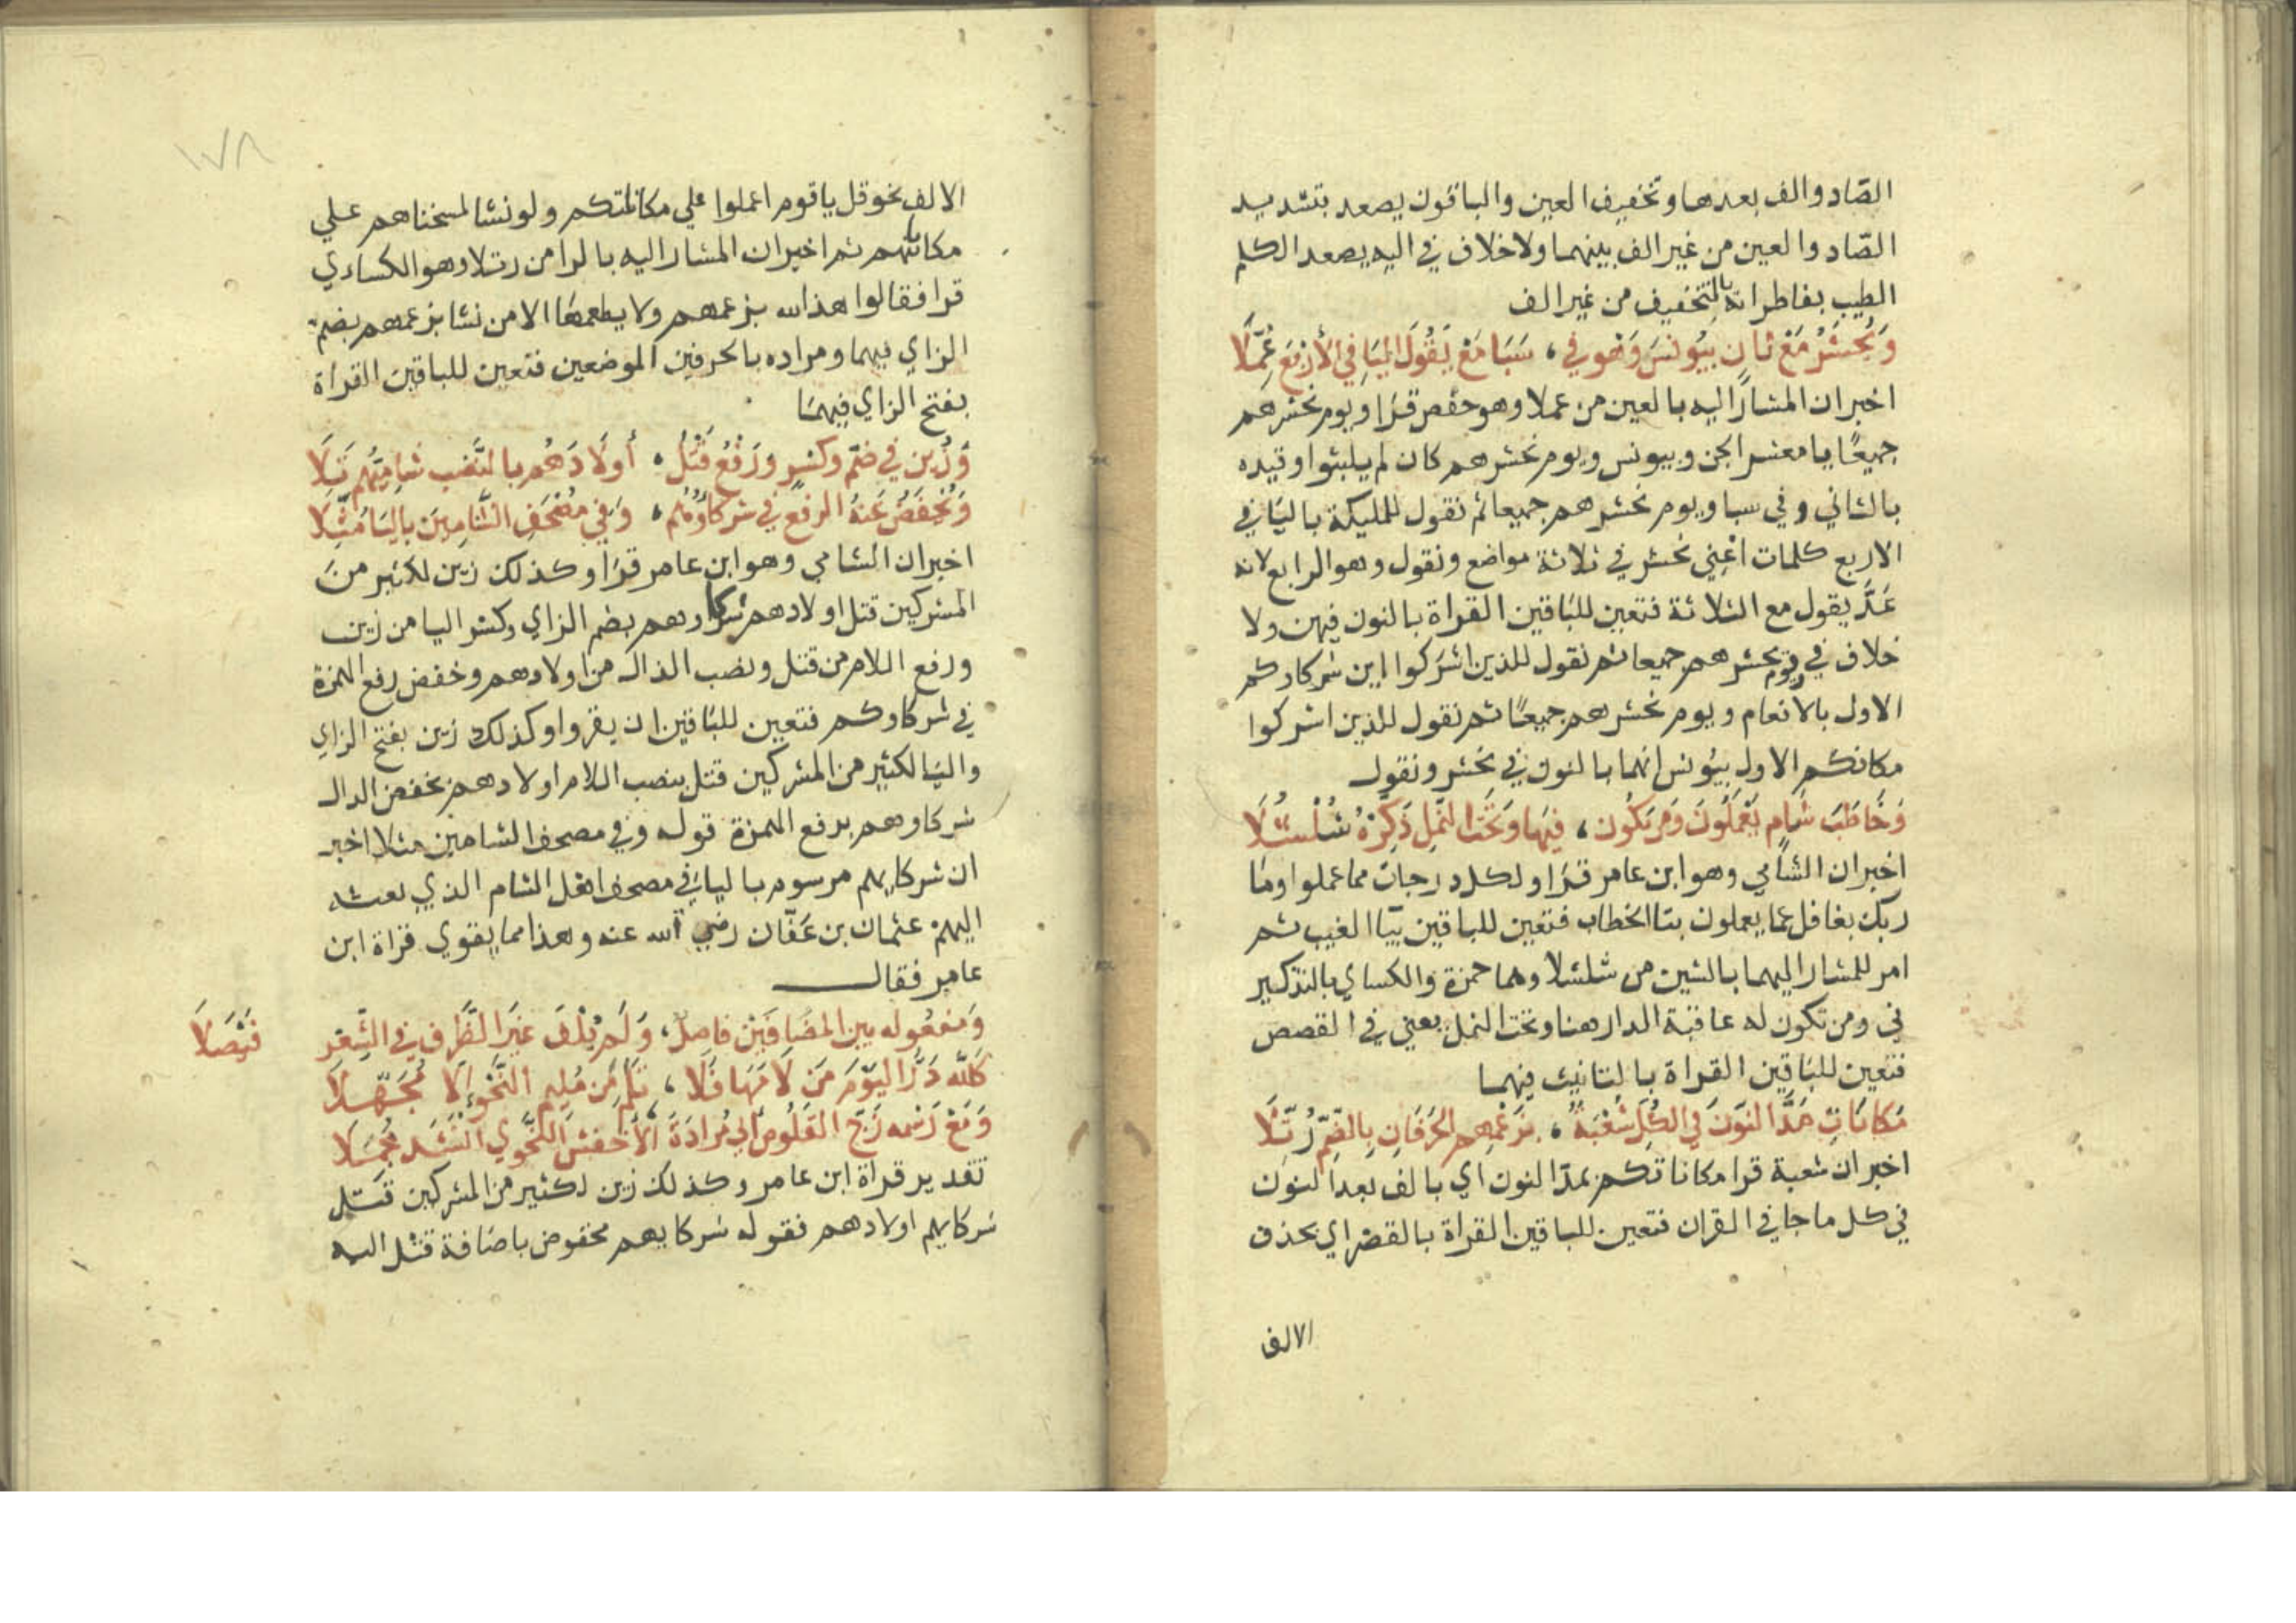 الصّاد والف بعدها وتخفيف العين والباقون يصعد بتشديد
الصّاد والعين من غير الف بينهما ولا خلاف في اليه يصعد الكلم
الطيب بفاطر انه بالتخفيف من غير الف
وَيُحْشَرُ مَعْ ثَانٍ بِيُونُسَ وَهْوَ في ، سَبَا مَعْ يَقُولُ اليَا فِي الأَرْبَعِ عُمِّلَا
اخبر ان المشار اليه بالعين من عملا وهو حفص قرا ويوم نحشرهم
جميعًا يا معشر الجن وبيونس ويوم نحشرهم كان لم يلبثوا وقيده
بالثاني وفي سبا ويوم نحشرهم جميعا ثم نقول للمليكة باليَا في
الاربع كلمات اعْنِي نحشر في ثلاثة مواضع ونقول وهو الرابع لانه
عَدَّ يقول مع الثلاثة فتعين للبَاقين القراة بالنون فيهن ولا
خلاف في ويوم نحشرهم جميعا ثم نقول للذين اشركوا اين شركاوكم
الاول بالانعام ويوم نحشرهم جميعًا ثم نقول للذين اشركوا
مكانكم الاول بيُونس انهما بالنون في نحشر ونقول
وَخَاطَبَ شَامٍ يَعْمَلُونَ وَمَن يَكُون ، فِيهَا وَتَحْتَ النَّمْلِ ذَكِّرْهُ شُلْشُلَا
اخبر ان الشَامي وهو ابن عامر قرَا ولكل درجات مما عملوا ومَا
ربك بغافل عما يعملون بتا الخطاب فتعين للباقين بيَا الغيب ثم
امر للمشار اليهما بالشين من شلشلا وهما حمزة والكساي بالتذكير
في ومن تكون له عاقبة الدار هنا وتحت النمل يعني في القصص
فتعين للبَاقين القراة بالتانيث فيهما
مَكَانَاتِ مَدَّ النونَ فِي الكُلِّ شُعْبَةٌ ، بِزَعْمِهِم الحَرْفَانِ بِالضَّمِّ رُتِّلَا
اخبر ان شعبة قرا مكاناتكم بمدّ النون اي بالف بعد النون
في كل ما جا في القران فتعين للباقين القراة بالقصر اي بحذف
الالف
الالف نحو قل يا قوم اعملوا علي مكانتكم ولو نشا لمسخناهم علي
مكانتهم ثم اخبر ان المشار اليه بالرا من رتلا وهو الكساءي
قرا فقالوا هذا لله بزعمهم ولا يطعمهَا الا من نشا بزعمهم بضم
الزاي فيهما ومراده بالحرفين الموضعين فتعين للباقين القراة
بفتح الزاي فيهمَا
وَزُيِّنَ فِي ضَمٍّ وكَسْرٍ وَرَفْعُ قَتْلُ ، أَوْلَادَهُم بالنَّصْبِ شَامِيُّهُم تَلَا
وَيُخْفَضُ عَنهُ الرفعُ فِي شركَاؤُهُم ، وَفِي مُصْحَفِ الشَّامِينَ بِاليَا مُثِّلَا
اخبر ان الشامي وهو ابن عامر قرَا وكذلك زين لكثير من
المشركين قتل اولادهم شركاوهم بضم الزاي وكسْر اليا من زين
ورفع اللام من قتل ونصب الدال من اولادهم وخفض رفع الهمزة
في شركاوكم فتعين للبَاقين ان يقرواو كذلك زين بفتح الزاي
واليَا لكثير من المشركين قتل بنصب اللام اولادهم بخفض الدال
شركاوهم برفع الهمزة قوله وفي مصحف الشامين مثلا اخبر
ان شركايهم مرسوم باليَا في مصحف اهل الشام الذي بعثه
اليهم عثمان بن عَفّان رضي الله عنه وهذا مما يقوي قراة ابن
عامر فقال
وَمَفعُوله بين المضَافَيْن فاصلٌ ، وَلَم يُلْفَ غَيرَ الظَّرفِ في الشّعْر
فَيْصَلَا
كَللَّه دَرُّ اليَوْمَ مَن لَامَهَا فَلَا ، تَلُم مِن مُلِيمِ النَّحْوِ إلَّا مُجَهِّلَا
وَمَعْ رَسْمِه زَجَّ القَلُوصَ أَبِي مُزَادَةَ الأَخْفَشُ النَّحْوِي أَنْشَدَ مُجْمِلَا
تقدير قراة ابن عامر وكذلك زين لكثير من المشركين قَتل
شركايهم اولادهم فقوله شركايهم مخفوض باضافة قتل اليه
١٧٨